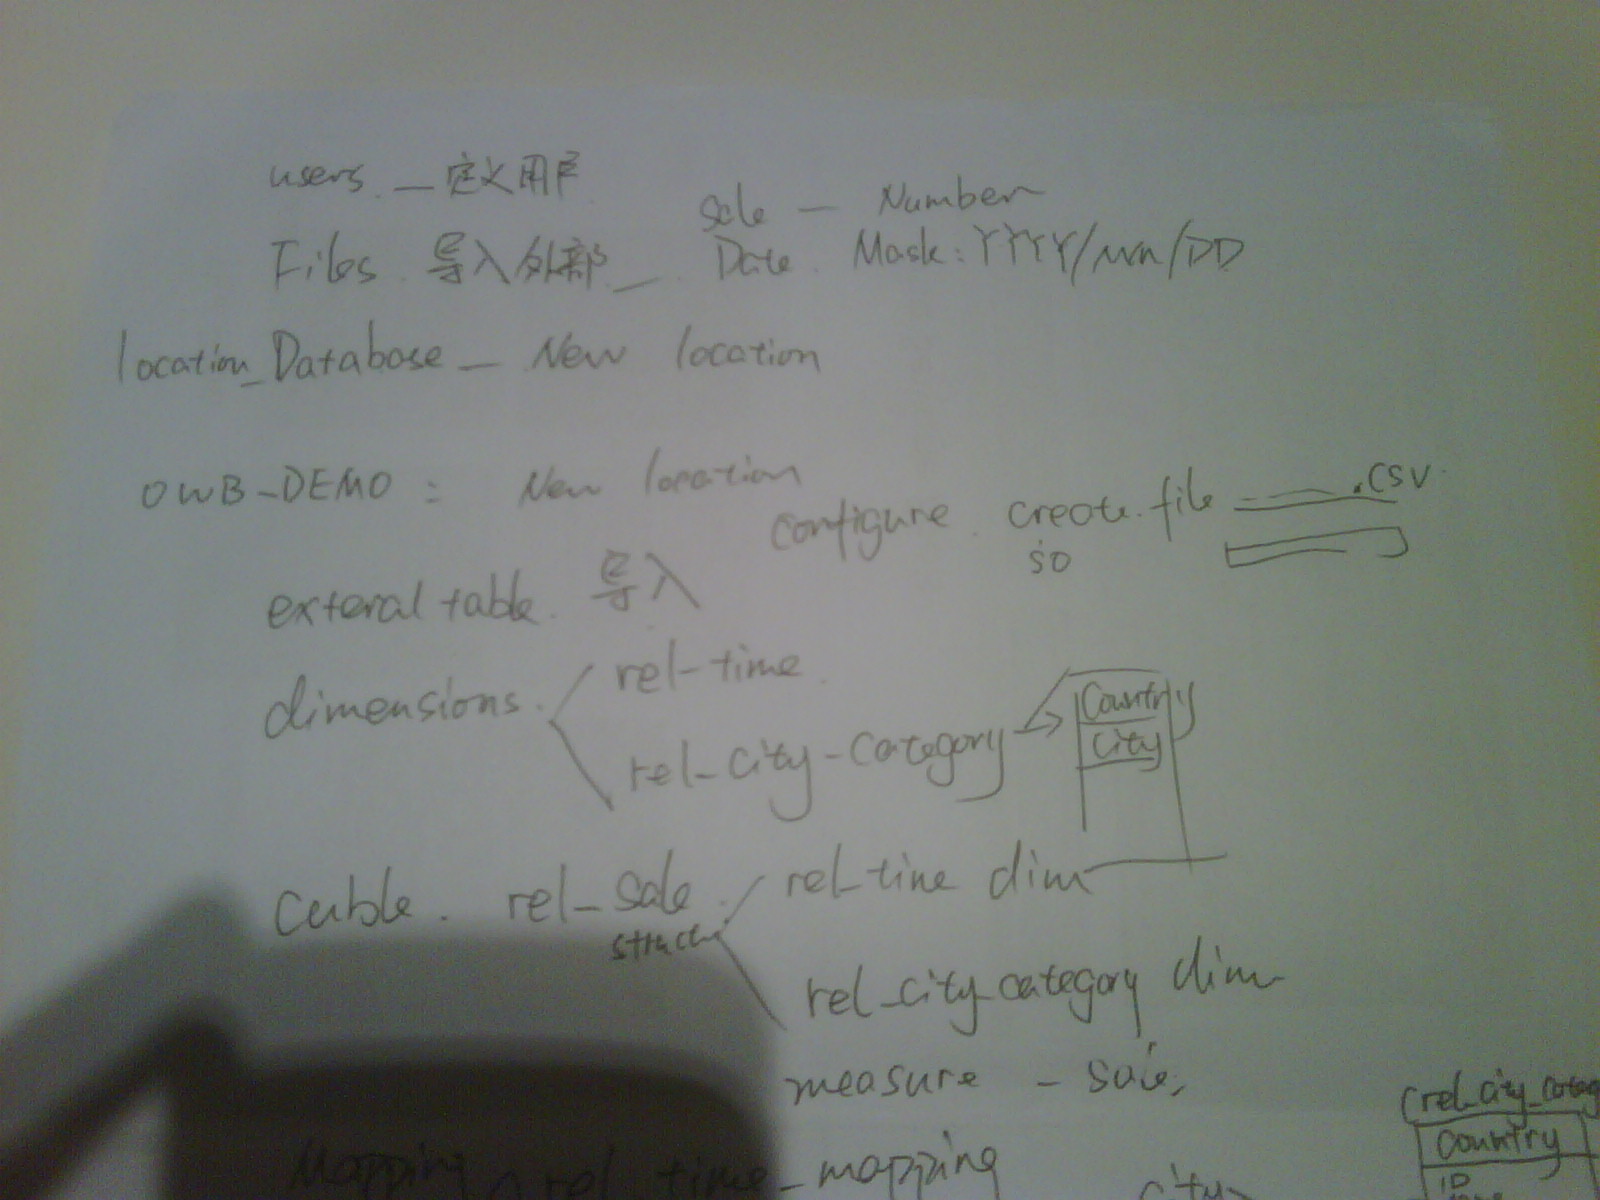 users. — 定义用户
sale — Number
Files. 导入外部 — Date. Mask: YYYY/MM/DD
location_Database — New location
OWB-DEMO : New location
configure. create. file .CSV
so
exteral table. 导入
dimensions. rel-time.
rel-city-category
Country
City
Cuble. rel-sale. rel-time dim
struct
rel_city_category dim
measure - sale,
(rel_city_categ
Country
ID
Mapping rel_time_mapping
city